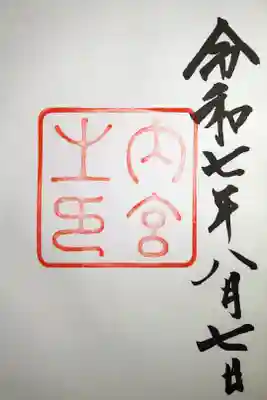 令和七年八月七日
内宮
之印